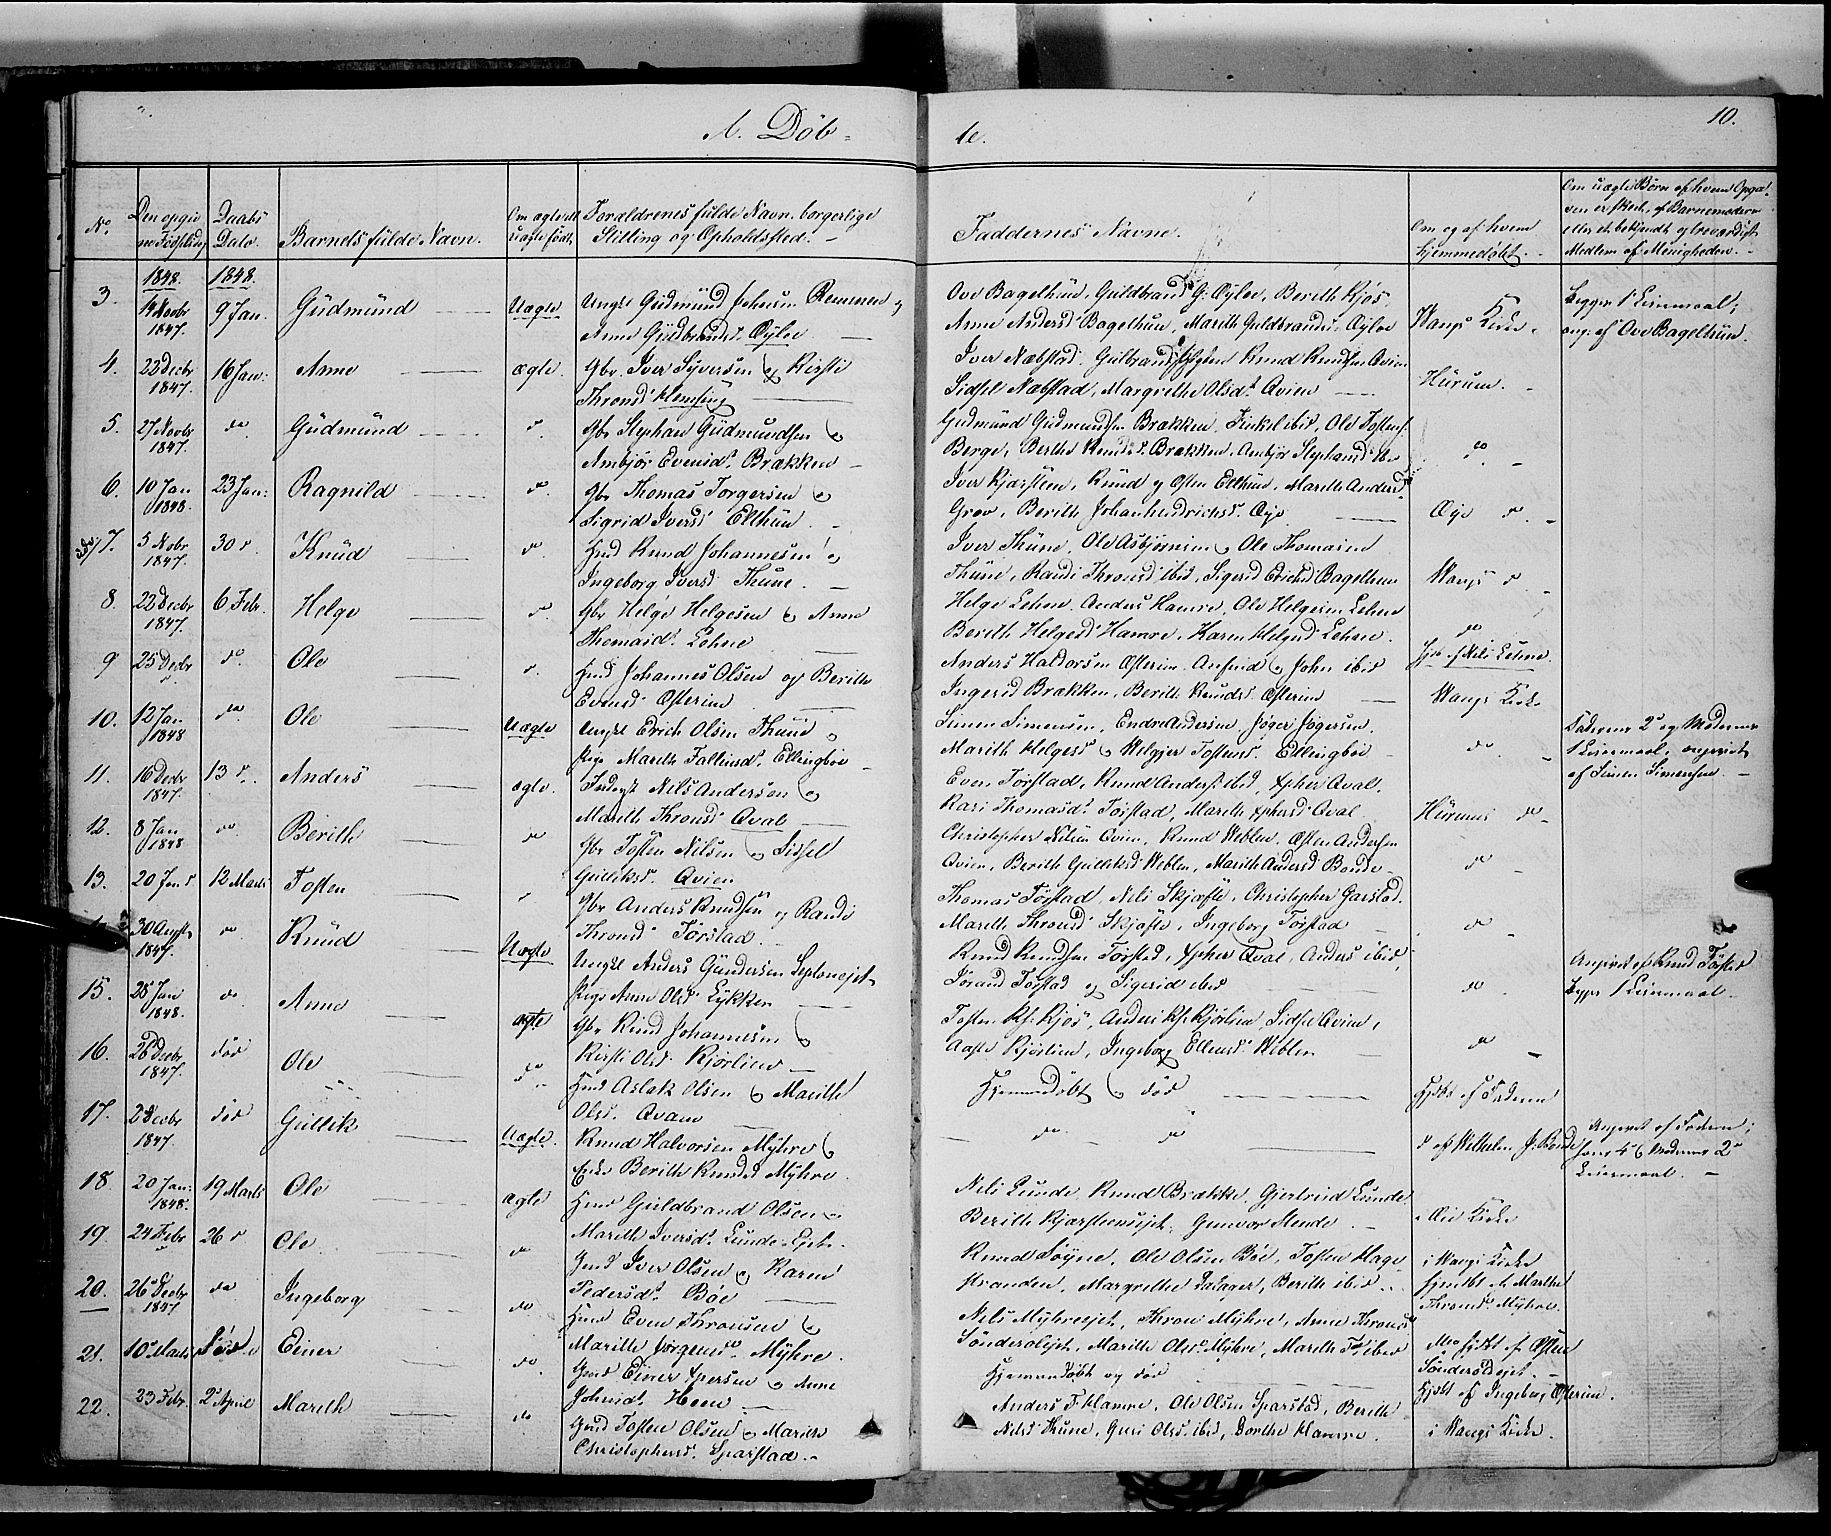 A. Døb-
te.
10.
No.
Den opgiv
ne Fødselsdag
Daabs
Dato.
Barnets fulde Navn.
Om ægte ell
uægte født.
Forældrenes fulde Navn, borgerlige
Stilling og Opholdssted.
Faddernes Navne.
Om og af hvem
hjemmedøbt.
Om uægte Børn af hvem Opgi-
ven er skeet, af Barnemoderen
eller et bekjendt og troværdigt
Medlem af Menigheden.
1848. 1848.
3. 14 Novbr 1847. 9 Jan. Gudmund Uægte Ungk Gudmund Johnsen Remmen og
Anne Gudbrands. Øyloe
Ove Bagethun, Guldbrand G. Øyloe, Berith Kjøs,
Anne Andersd Bagethun, Marith Guldbrandsd. Øyloe
Vangs Kirke.
Begges 1 Leiermaal;
ang. af Ove Bagethun.
4. 22 Decbr 1847. 16 Jan: Anne ægte. Gbr. Iver Syversen og Kirsti
Thronsd Hemsing
Iver Næbstad Knud Knudsen Qvien
Sidsel Næbstad, Margrethe Olsd. Qvien
Hurum.
5. 27 Novbr 1847. do. Gudmund do. Gbr Stephan Gudmundsen og
Ambjør Evensd. Brækken
Gudmund Gudmundsen Brækken, ibid, Ole Tostens.
Berge, Berthe Knudsd. Brækken, Ambjør Stephansd ibid
do.
6. 10 Jan 1848. 23 Jan: Ragnild do. Gbr Thomas Torgersen og
Sigrid Iversd Ellthun.
Iver Kjærsteen, Knud og Østen Ellthun, Marith Andersd
Grøv, Berith Johanhendrichsd. Øye
Øye do.
7. 5 Nobr 1847. 30 do. Knud do. Hmd Knud Johannesen og
Ingeborg Iversd Thune.
Iver Thune, Ole Asbjørnsen og Ole Thomasen
Thune, Randi Thronsd ibid, Sigrid Erichsd Bagethun
Vangs do.
8. 22 Decbr 1847. 6 Febr. Helge do. Gbr Helge Helgesen og Anne
Thomasd. Lehne
Helge Lehne, Anders Hamre, Ole Helgesen Lehne
Berith Helgesd Hamre, Karen Helgesd Lehne.
do
9 25 Decbr do. Ole do. Hmd Johannes Olsen og Berith
Evensd. Østerim
Anders Haldorsen Østerim, og John ibid
Ingerid Brækken, Berith Knudsd. Østerim
Hjdt af Nils Lehne.
Vangs Kirke
10. 12 Jan 1848 do Ole Uægte Ungk Erich Olsen Thune og
Pige Marith Ellingbøe
Simen Simensen, Endre Andersen Jøger Jøgersen.
Marith Helgesd og Tostensd. Ellingbøe
do.
Faderens 2d og Moderens
1 Leiermaal, angivet
af Simen Simensen.
11. 16 Decbr 1847. 13 do. Anders ægte. Nils Andersen og
Marith Thronsd Qvale
Even Torstad, Knud Anders. ibid, Xpher Qval,
Kari Thomasd. Torstad, Marith Xphersd Qval
Hurums do.
12. 8 Jan 1848 do. Berith do Gbr Tosten Nilsen og Sidsel
Gulliksd. Qvien
Christopher Nilsen Qvien, Knud Veblen, Østen Andersen
Qvien, Berith Gulliksd Veblen, Marith Andersd Bonde
do.
13. 20 Jan do 12 Marts Tosten do. Gbr Anders Knudsen og Randi
Thronsd Torstad.
Thomas Torstad, Nils Skjefte, Christopher Garstad.
Marith Thronsd Skjefte, Ingeborg Torstad
do.
30 Augst 1847. do Knud Uægte Ungk Anders Gundersen
Pige Anne Olsd. Lykken
Knud Knudsen Torstad, Xpher Qval, Anders ibid,
Torstad og Sigerid ibid
do.
Angivet af Knud Torstad
Begges 1 Leiermaal.
15. 25 Jan 1848. do Anne ægte Gbr Knud Johannesen og
Kirsti Olsd. Kjørlien
Tosten Ks. Kjøs, Anders Ks. Kjørlien, Sidsel Qvien,
Aaste Kjørlien, Ingeborg Ellensd. Veblen
do
16. 26 Decbr 1847. død Ole do. Hmd Aslak Olsen og Marith
Olsd. Qvam
Hjemmedøbt og død
Hjdt af Faderen
17. 2 Decbr 1847. død Gullik Uægte. Knud Halvorsen Myhre og
Enke Berith Knudsd Myhre.
do do
do af Vilhelm J. Bonde
Angivet af Faderen;
hans 4 og Moderens 2d
Leiermaal.
18. 20 Jan: 1848. 19 Marts Ole ægte Hmd Guldbrand Olsen og
Marith Iversd. Lunde-Eie.
Nils Lunde, Knud Brække, Gjertrud Lunde
Berith Kjærsteenseiet, Gunvor Stende.
Øie Kirke
19 24 Febr 26 do Ole do Hmd Iver Olsen og Karen
Pedersd. Bøe
Knud Søyne, Ole Olsen Bøe, Tosten Hage
Stranden, Margrethe Dalager, Berith ibid.
i Vangs Kirke
20. 26 Decbr 1847 do Ingeborg do Hmd Even Thronsen og
Marith Jørgensd. Myhre.
Nils Myhreseiet, Thron Myhre, Anne Thronsd
Sønderoleiet, Marith Olsd. Myhre, Marith ibid
hjmdbt af Marthe
Thronsd. Myhre.
21. 10 Marts død Einer do. Hmd Einer Xpersen og Anne
Johnsd. Hoen
Hjemmedøbt og død
hjdt af Østen
Sønderoleiet.
Hjdbt af Ingeborg Østerim.
22. 23 Febr. 2 April Marith do Hmd Tosten Olsen og Marith
Christophersd. Sparstad.
Anders F. Hamre, Ole Olsen Sparstad, Berith
Nilsd Thune, Guri Olsd. ibid, Dorthe Hamre.
i Vangs Kirke.